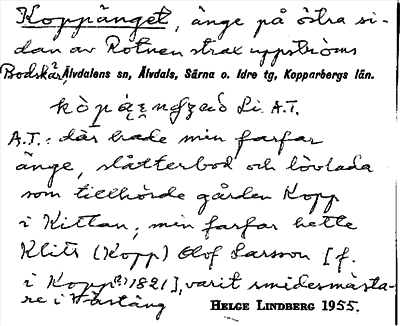 Koppänget, änge på östra si-
dan av Rotnen strax uppströms
Bodskär, Älvdalens sn, Älvdals, Särna o. Idre tg, Kopparbergs län.
Li. A.T.
A.T.: där hade min farfar
änge, slåtterbod och lövlada
som tillhörde gården Kopp
i Kittan; min farfar hette
Klits (Kopp) Olof Larsson [f.
i Kopp 1821], varit smidesmästa-
re i
HELGE LINDBERG 1955.